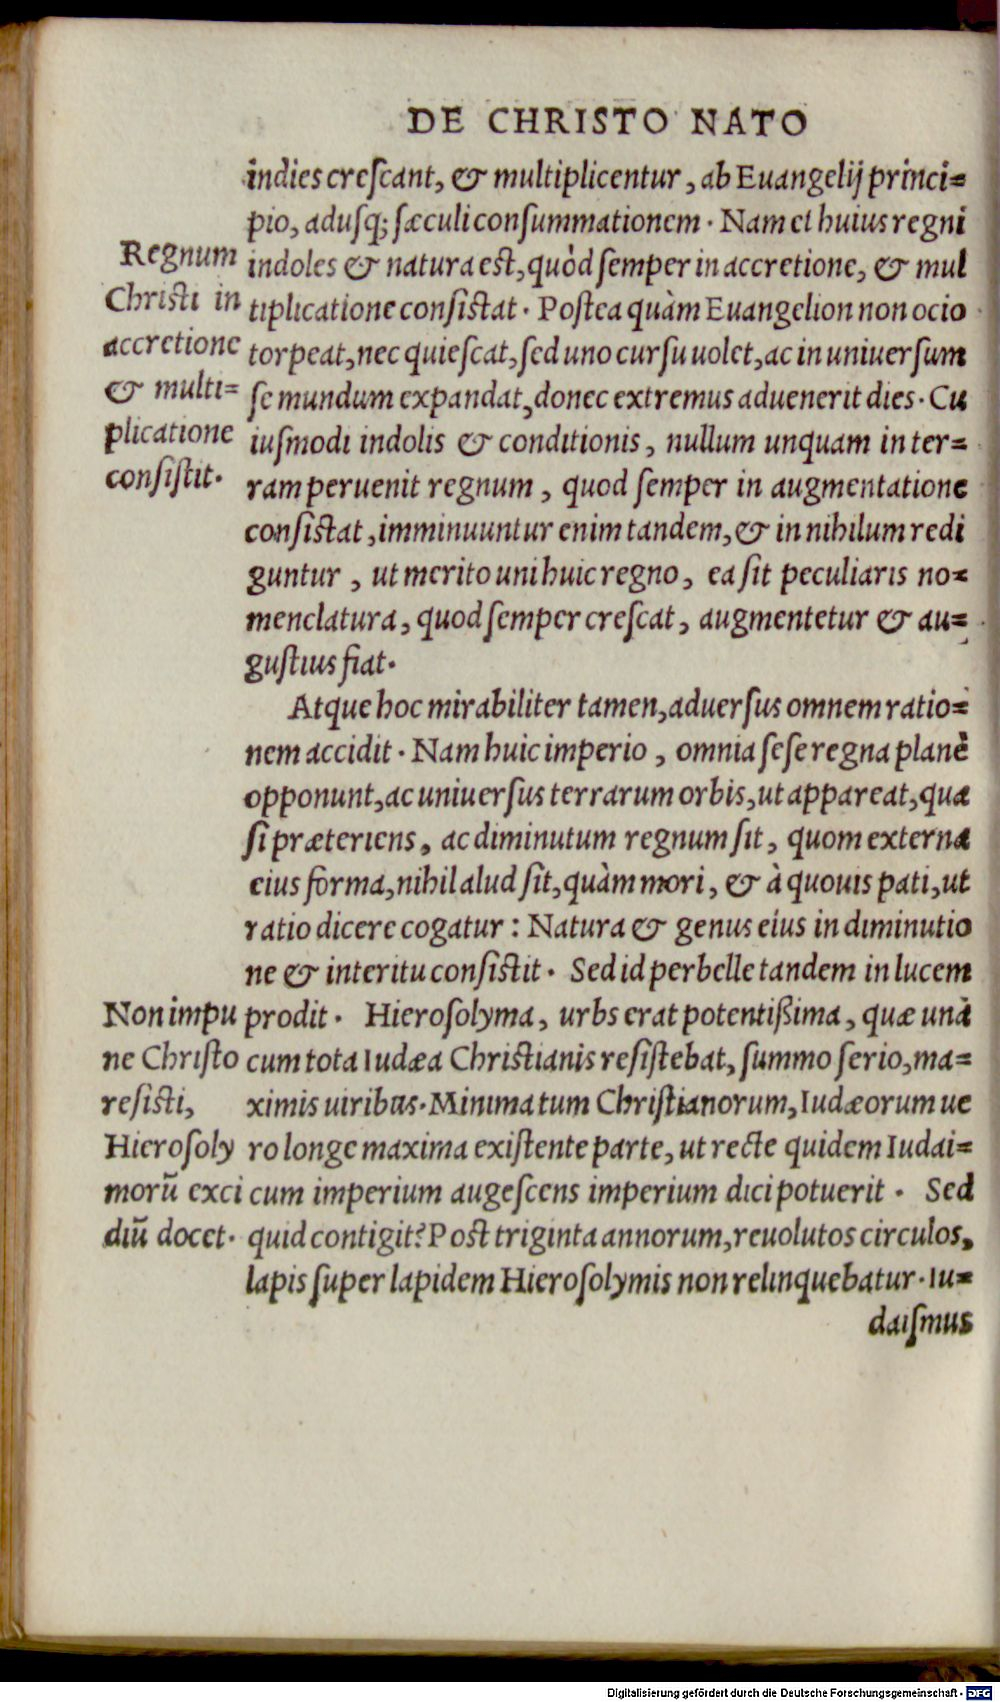 DE CHRISTO NATO
indies creſcant, & multiplicentur, ab Euangelij princi=
pio, aduſq; ſæculi conſummationem. Nam et huius regni
indoles & natura est, quòd ſemper in accretione, & mul
tiplicatione conſistat. Poſtea quàm Euangelion non ocio
torpeat, nec quieſcat, ſed uno curſu uolet, ac in uniuerſum
ſe mundum expandat, donec extremus aduenerit dies. Cu
iuſmodi indolis & conditionis, nullum unquam in ter=
ram peruenit regnum, quod ſemper in augmentatione
conſistat, imminuuntur enim tandem, & in nihilum redi
guntur, ut merito uni huic regno, ea ſit peculiaris no=
menclatura, quod ſemper creſcat, augmentetur & au=
guſtius fiat.
Regnum
Chriſti in
accretione
& multi=
plicatione
conſiſtit.
Atque hoc mirabiliter tamen, aduerſus omnem ratio=
nem accidit. Nam huic imperio, omnia ſeſe regna planè
opponunt, ac uniuerſus terrarum orbis, ut appareat, quæ
ſi præteriens, ac diminutum regnum ſit, quom externa
eius forma, nihil alud ſit, quàm mori, & à quouis pati, ut
ratio dicere cogatur: Natura & genus eius in diminutio
ne & interitu conſiſtit. Sed id perbelle tandem in lucem
prodit. Hieroſolyma, urbs erat potentißima, quæ unà
cum tota Iudæa Chriſtianis reſiſtebat, ſummo ſerio, ma=
ximis uiribus. Minima tum Chriſtianorum, Iudæorum ue
ro longe maxima exiſtente parte, ut recte quidem Iudai=
cum imperium augeſcens imperium dici potuerit. Sed
quid contigit? Poſt triginta annorum, reuolutos circulos,
lapis ſuper lapidem Hieroſolymis non relinquebatur. Iu=
daiſmus
Non impu
ne Chriſto
reſiſti,
Hieroſoly
morū exci
diū docet.
Digitalisierung gefördert durch die Deutsche Forschungsgemeinschaft - DFG